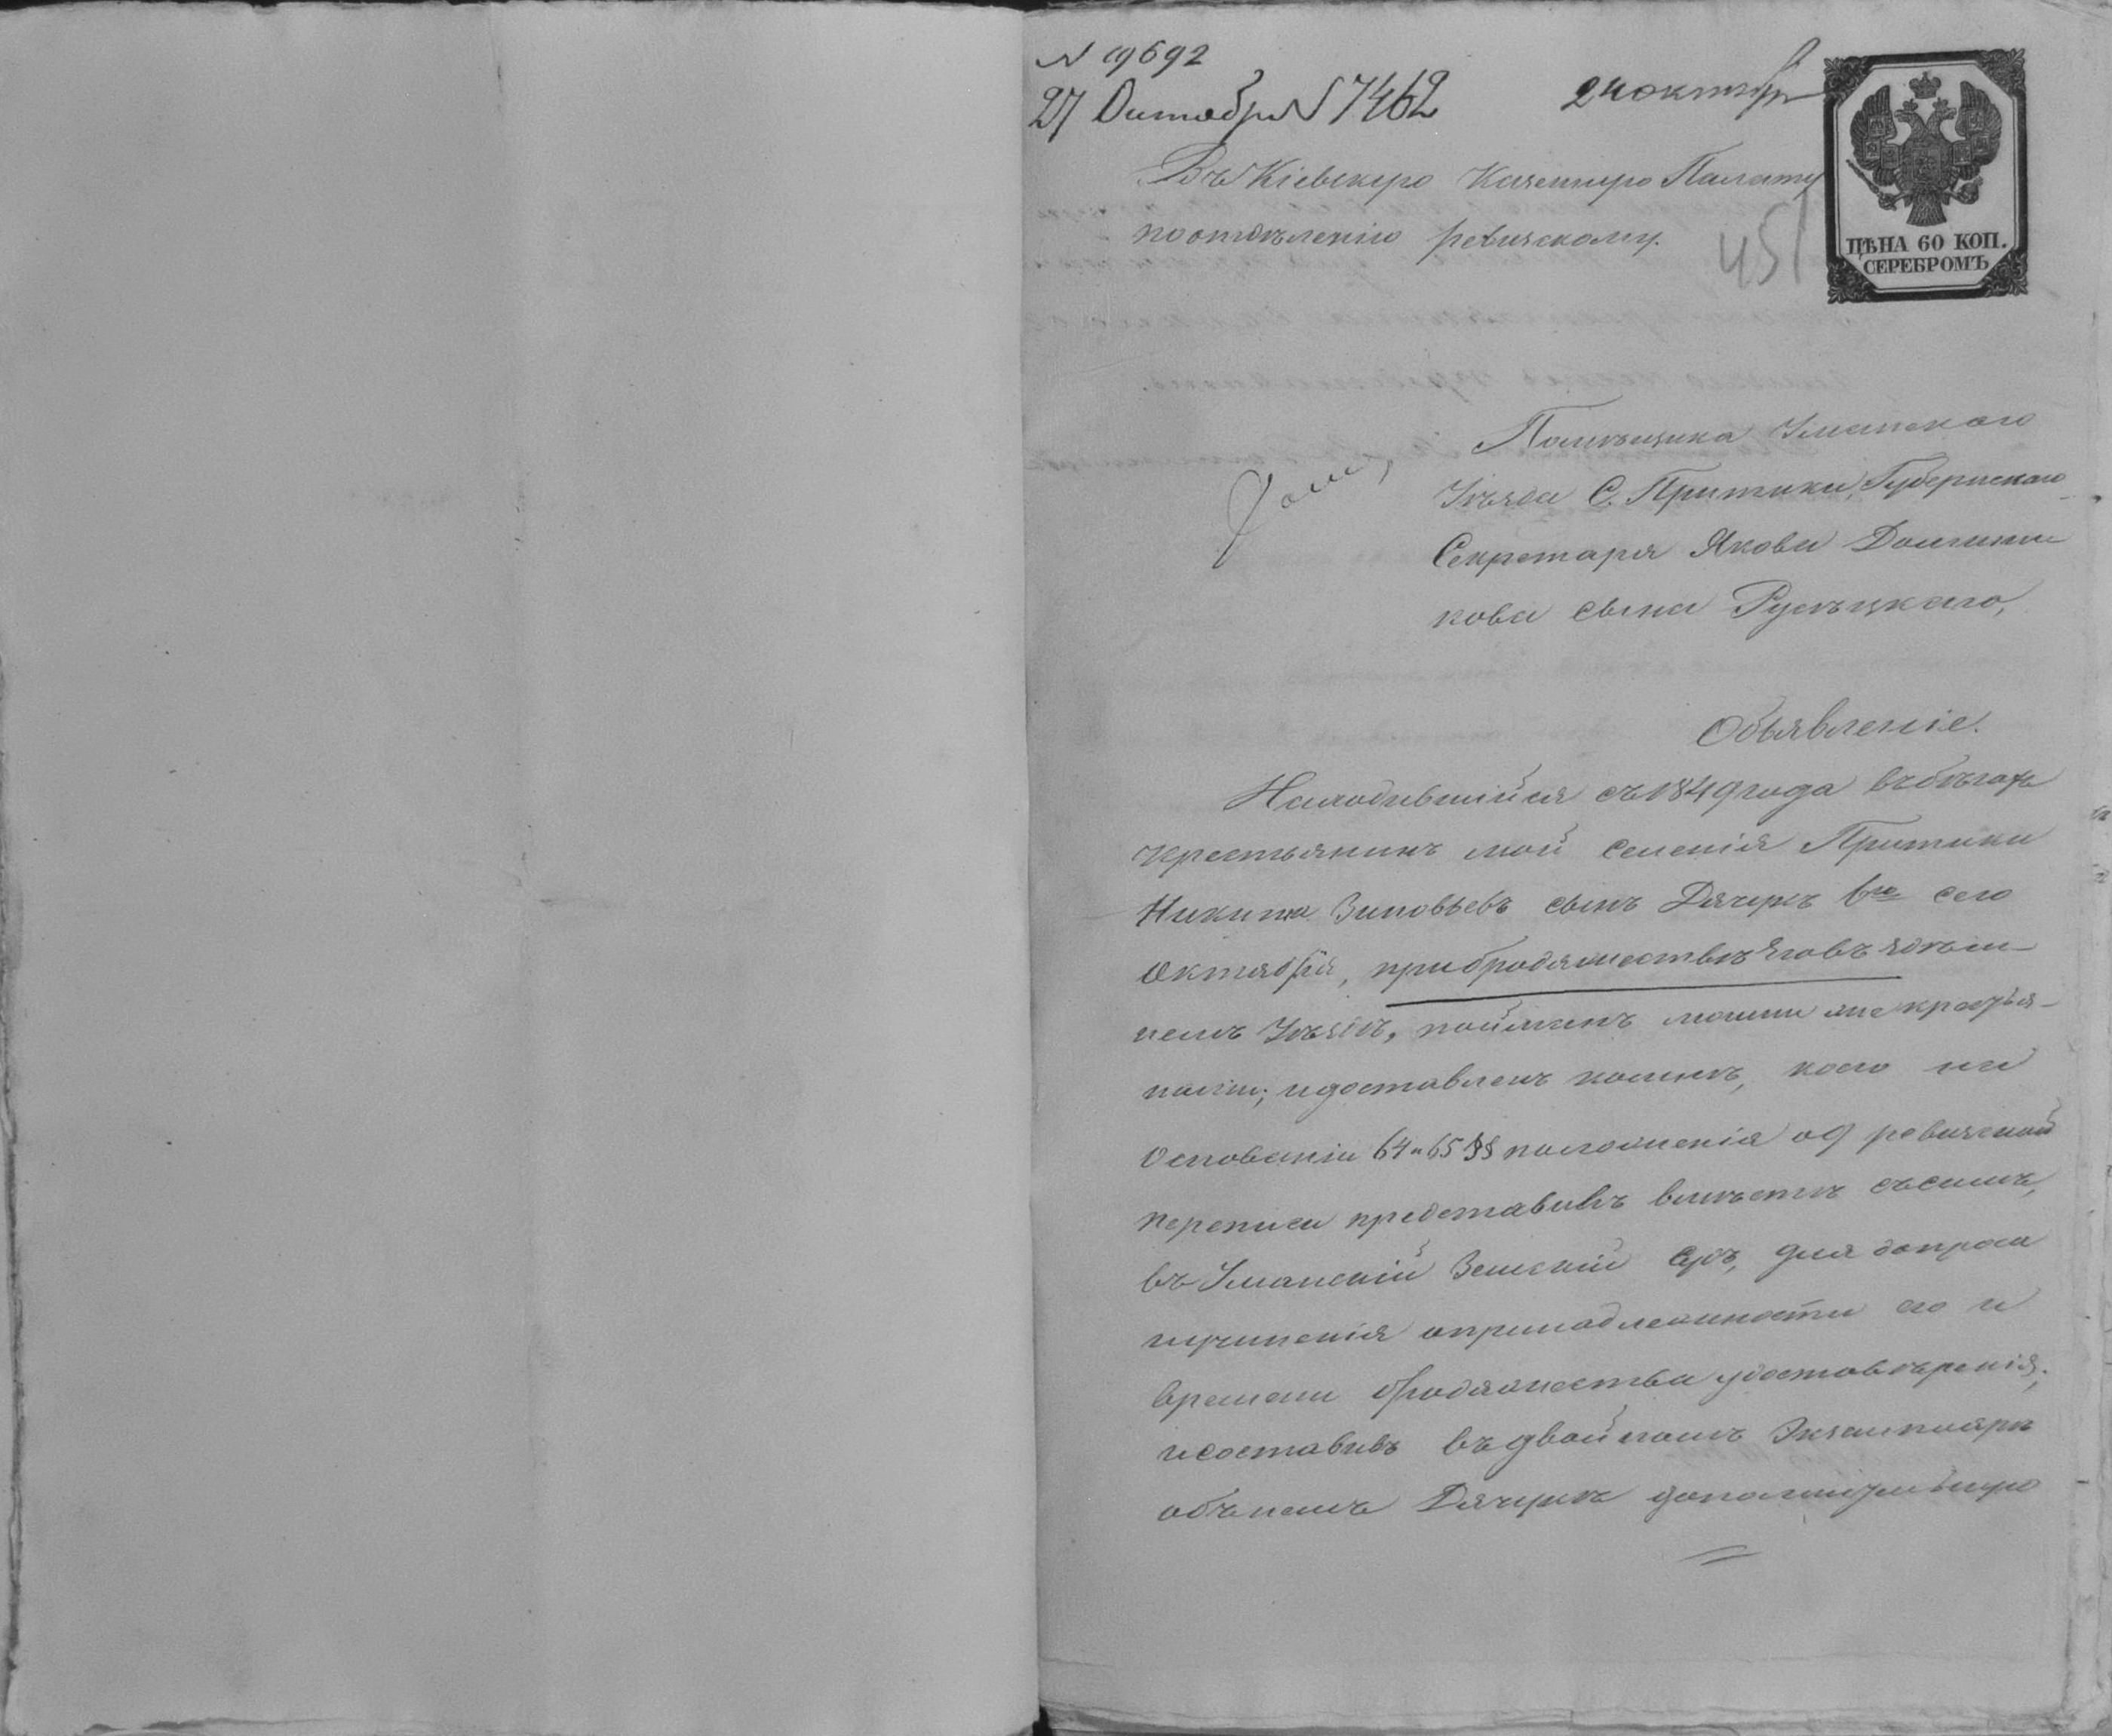 N 19692
27 Октября N 7462
24 октября
Въ Кіевскую Казенную Палату
по отдѣленію ревизскому.
451
ЦѢНА 60 КОП.
СЕРЕБРОМЪ
Помѣщика Уманского
Уѣзда С. Притики, Губернскаго
Секретаря Якова Домини-
кова сына Русѣцкаго,
Объявленіе.
Находившійся съ 1849 года въ бѣгахъ
крестьянинъ мой селенія Притики
Никита Зиновьевъ сынъ Дячукъ 6го сего
Октября, при бродяжествѣ
Уѣздѣ, пойманъ моими же крестья-
нами; и доставленъ ко мнѣ, коего на
Основаніи 64 и 65 §§ положенія о ревизской
переписи представивъ вмѣстѣ съ симъ,
въ Уманскій Земскій Судъ, для допроса
и учиненія о принадлежности его и
времени бродяжества удостовѣренія;
и составивъ въ двойномъ Экземплярѣ
объ немъ Дячукѣ дополнительную